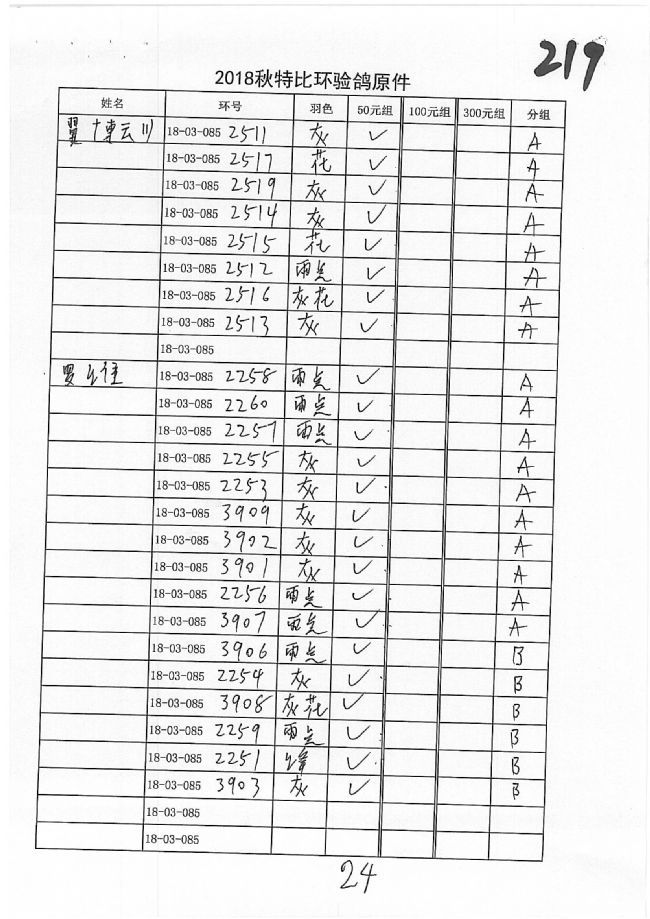 219
2018秋特比环验鸽原件
姓名 环号 羽色 50元组 100元组 300元组 分组
翼 博云川 18-03-085 2511 灰 ✓ A
18-03-085 2517 花 ✓ A
18-03-085 2519 灰 ✓ A
18-03-085 2514 灰 ✓ A
18-03-085 2515 花 ✓ A
18-03-085 2512 雨点 ✓ A
18-03-085 2516 灰花 ✓ A
18-03-085 2513 灰 ✓ A
18-03-085
罗 18-03-085 2258 雨点 ✓ A
18-03-085 2260 雨点 ✓ A
18-03-085 2257 雨点 ✓ A
18-03-085 2255 灰 ✓ A
18-03-085 2253 灰 ✓ A
18-03-085 3909 灰 ✓ A
18-03-085 3902 灰 ✓ A
18-03-085 3901 灰 ✓ A
18-03-085 2256 雨点 ✓ A
18-03-085 3907 雨点 ✓ A
18-03-085 3906 雨点 ✓ B
18-03-085 2254 灰 ✓ B
18-03-085 3908 灰花 ✓ B
18-03-085 2259 雨点 ✓ B
18-03-085 2251 绛 ✓ B
18-03-085 3903 灰 ✓ B
18-03-085
18-03-085
24